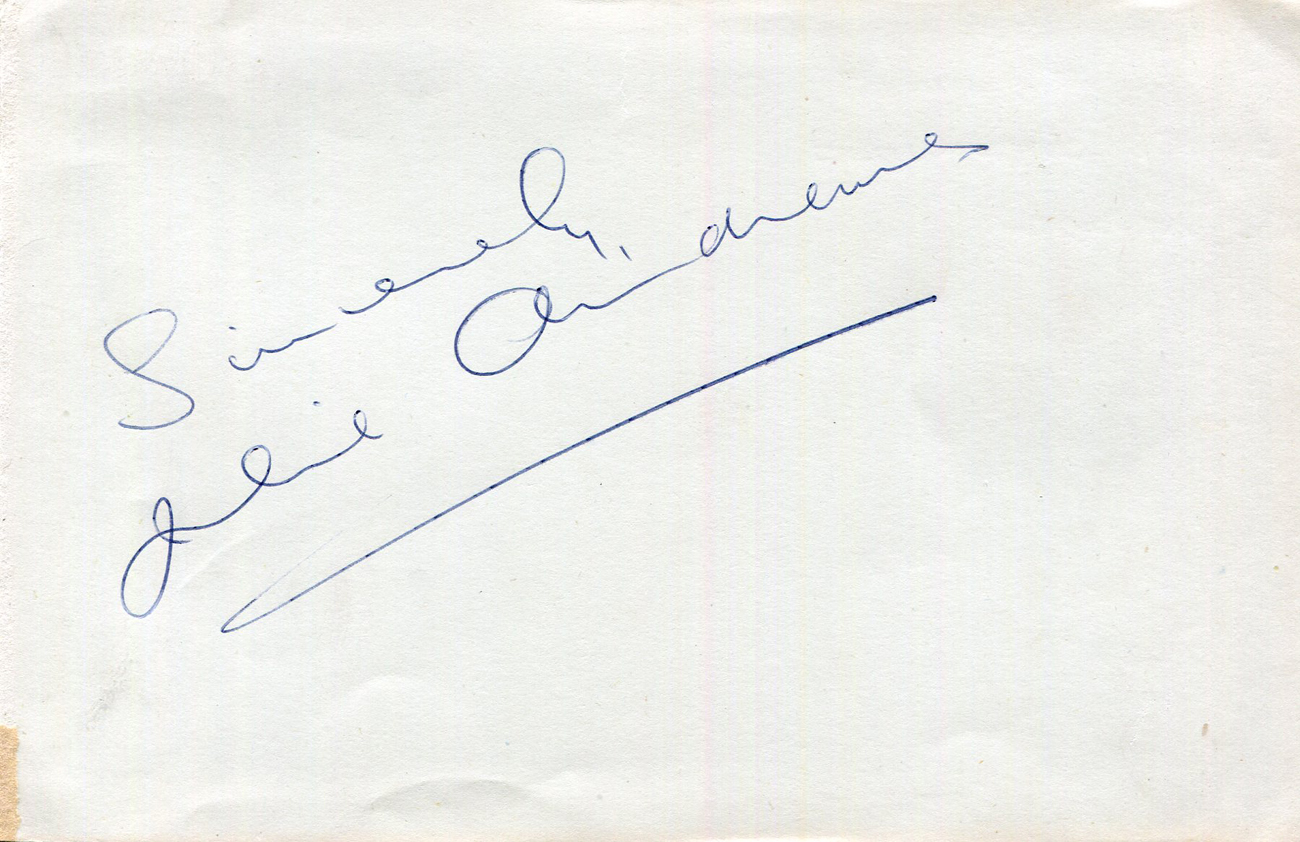 Sincerely,
Julie Andrews